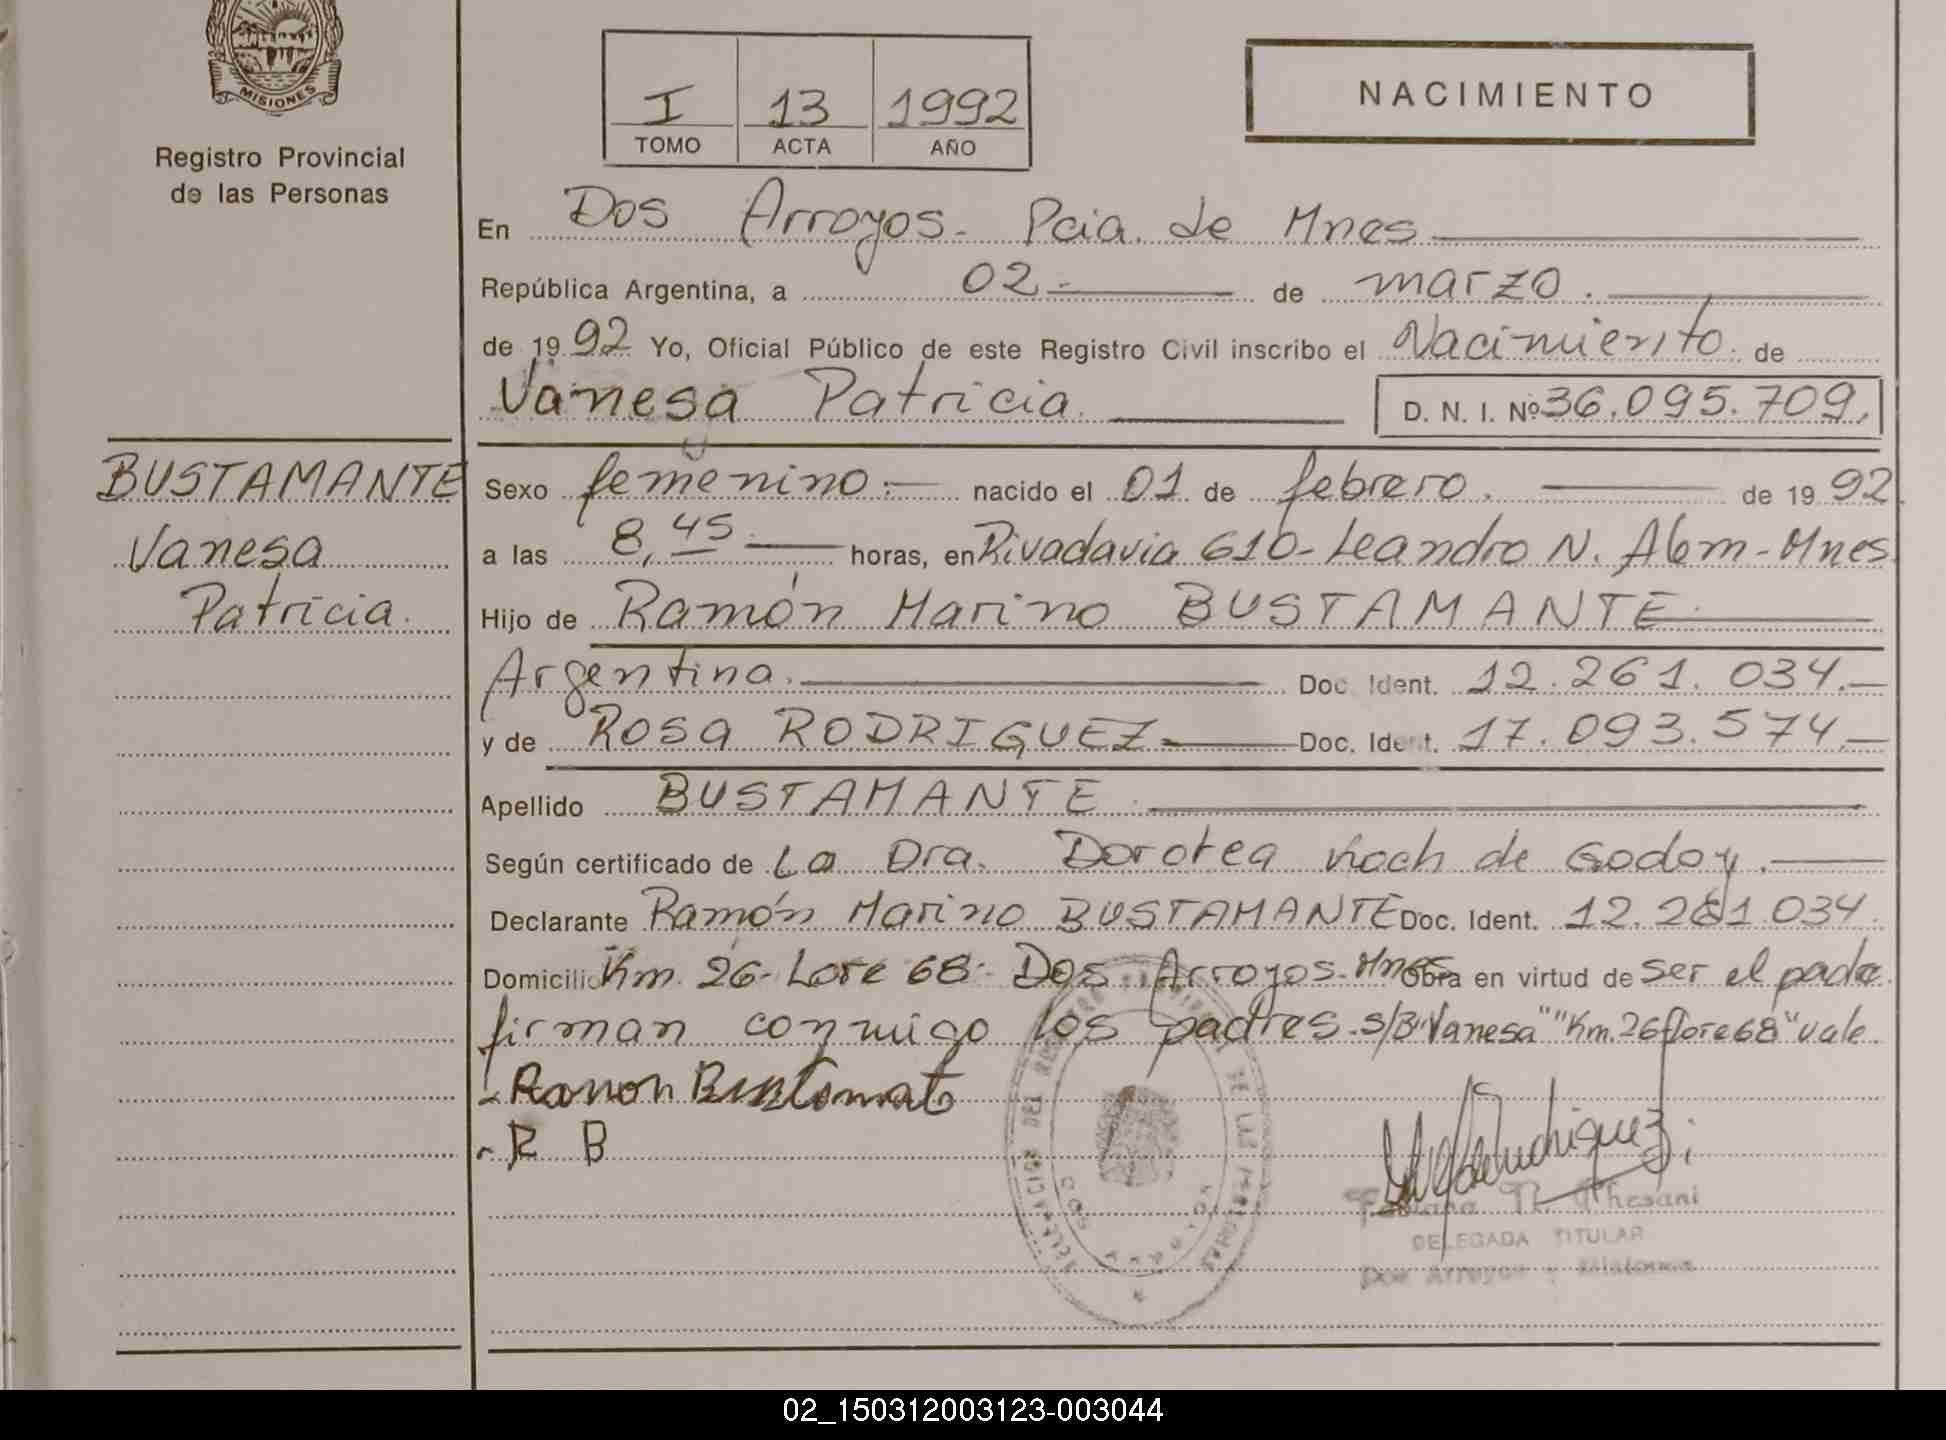 MISIONES
Registro Provincial
de las Personas
I 13 1992
TOMO ACTA AÑO
NACIMIENTO
En Dos Arroyos - Pcia. de Mnes
República Argentina, a 02.- de marzo.
de 1992 Yo, Oficial Público de este Registro Civil inscribo el Nacimiento. de
Vanesa Patricia. D. N. I. Nº 36.095.709.
BUSTAMANTE
Vanesa
Patricia.
Sexo femenino.- nacido el 01 de febrero. de 1992
a las 8,45.- horas, en Rivadavia 610 - Leandro N. Alem - Mnes
Hijo de Ramón Marino BUSTAMANTE.
Argentina. Doc. Ident. 12.261.034.-
y de Rosa RODRIGUEZ.- Doc. Ident. 17.093.574.-
Apellido BUSTAMANTE.
Según certificado de La Dra. Dorotea Koch de Godoy.
Declarante Ramón Marino BUSTAMANTE Doc. Ident. 12.261.034.
Domicilio Km. 26 - Lote 68 - Dos Arroyos - Mnes Obra en virtud de ser el padre
firman conmigo los padres. s/B "Vanesa" "Km. 26 lote 68" vale.
- Ramon
- R B
DELEGACION DEL REGISTRO PROVINCIAL DE LAS PERSONAS
DOS ARROYOS
Fabiana
DELEGADA TITULAR
Dos Arroyos - Misiones
02_150312003123-003044